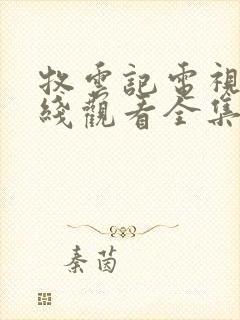 牧雲記電視
綫觀看全集
秦茵